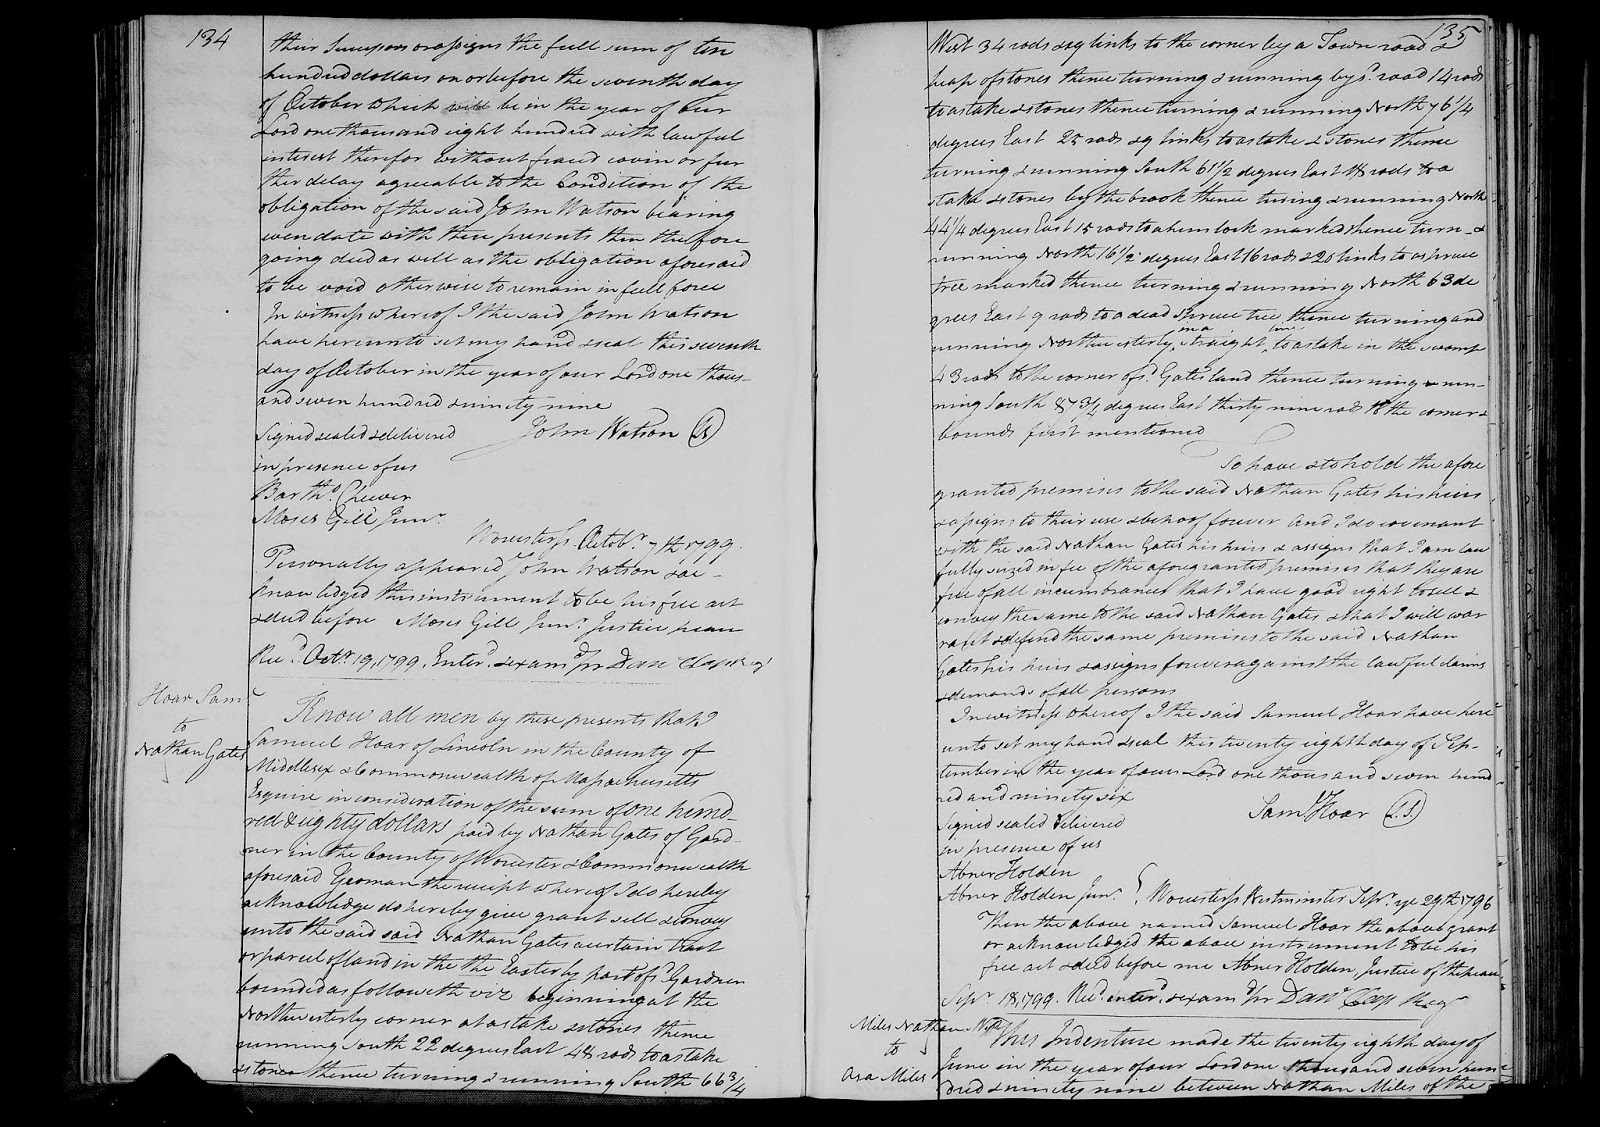 134
their Successors or assigns the full sum of ten
hundred dollars on or before the seventh day
of October which will be in the year of Our
Lord one thousand eight hundred with lawful
interest therefor without fraud covin or fur
ther delay agreable to the Condition of the
obligation of the said John Watson bearing
even date with these presents then the fore
going deed as well as the obligation aforesaid
to be void otherwise to remain in full force
In witness whereof I the said John Watson
have hereunto set my hand & seal this seventh
day of October in the year of our Lord one thous-
and seven hundred & ninety nine
Signed sealed & delivered John Watson
in presence of us
Bartho. Cheever
Moses Gill Junr.
Worcester ss Octobr. 7th 1799.
Personally appeared John Watson & ac-
knowledged this instrument to be his free act
& deed before Moses Gill Junr. Justice peace
Recd. Octr. 19, 1799. Enterd. & examd. pr Danl Clap Regr
Hoar Saml
to
Nathan Gates
Know all men by these presents that I
Samuel Hoar of Lincoln in the County of
Middlesex & Commonwealth of Massachusetts
Esquire in consideration of the sum of one hund-
red & eighty dollars paid by Nathan Gates of Gard-
ner in the County of Worcester & Commonwealth
aforesaid Yeoman the receipt whereof I do hereby
acknowledge do hereby give grant sell & convey
unto the said said Nathan Gates a certain tract
or parcel of land in the the Easterly part of sd. Gardner
bounded as followeth viz beginning at the
Northwesterly corner at a stake & stones thence
running South 22 degrees East 48 rods to a stake
& stones thence turning & running South 66 3/4
135
West 34 rods & 29 links to the corner by a Town road &
heap of stones thence turning & running by sd. road 14 rods
to a stake & stones thence turning & running North 76 1/4
degrees East 25 rods & 9 links to a stake & stones thence
turning & running South 61 1/2 degrees East 18 rods to a
stake & stones by the brook thence turing & running North
44 1/4 degrees East 15 rods to a hemlock marked thence turn- &
running North 16 1/2 degrees East 16 rods & 20 links to a spruce
tree marked thence turning & running North 63 de
grees East 9 rods to a dead spruce tree thence turning and
running Northwesterly in a straight line to a stake in the swamp
43 rods to the corner of sd. Gates land thence turning & run-
ning South 87 3/4 degrees East thirty nine rods to the corner &
bounds first mentioned
To have & to hold the afore
granted premises to the said Nathan Gates his heirs
& assigns to their use & behoof forever And I do covenant
with the said Nathan Gates his heirs & assigns that I am law
fully seized in fee of the aforegranted premises that they are
free of all incumbrances that I have good right to sell &
convey the same to the said Nathan Gates & that I will war
rant & defend the same premises to the said Nathan
Gates his heirs & assigns forever against the lawful claims
& demands of all persons
In witness whereof I the said Samuel Hoar have here
unto set my hand & seal this twenty eighth day of Sep-
tember in the year of our Lord one thousand seven hund
red and ninety six
Signed sealed & delivered Saml Hoar (L.S.)
in presence of us
Abner Holden
Abner Holden Junr. } Worcester ss Westminster Sepr. ye 29th 1796
Then the above named Samuel Hoar the above grant
or acknowledged the above instrument to be his
free act & deed before me Abner Holden, Justice of the peace
Sepr. 18, 1799. Recd. enterd. & examd. pr Danl Clap Regr
Miles Nathan
to
Asa Miles
This Indenture made the twenty eighth day of
June in the year of our Lord one thousand seven hun
dred & ninety nine between Nathan Miles of the